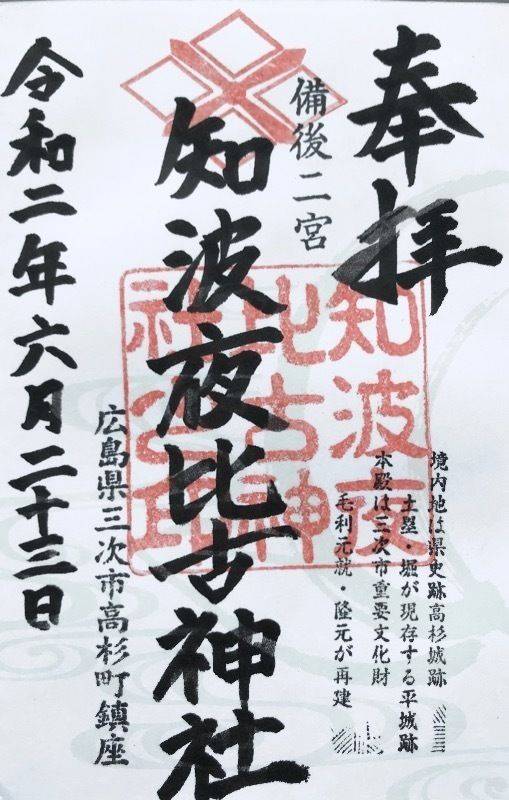 奉拝
境内地は県史跡高杉城跡
土塁・堀が現存する平城跡
本殿は三次市重要文化財
毛利元就・隆元が再建
備後二宮
知波夜比古神社
知波夜
比古神
社之印
広島県三次市高杉町鎮座
令和二年六月二十三日